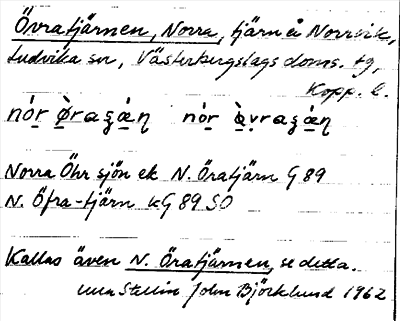 Övratjärnen, Norra, tjärn å Norrvik,
Ludvika sn, Västerbergslags doms. tg,
Kopp. l.
nór ø̀raʂán nór àvraʂán
Norra Öhr sjön ek N. Öratjärn G 89
N. Öfra-tjärn kG 89 SO
Kallas även N. Öratjärnen, se detta.
John Björklund 1962